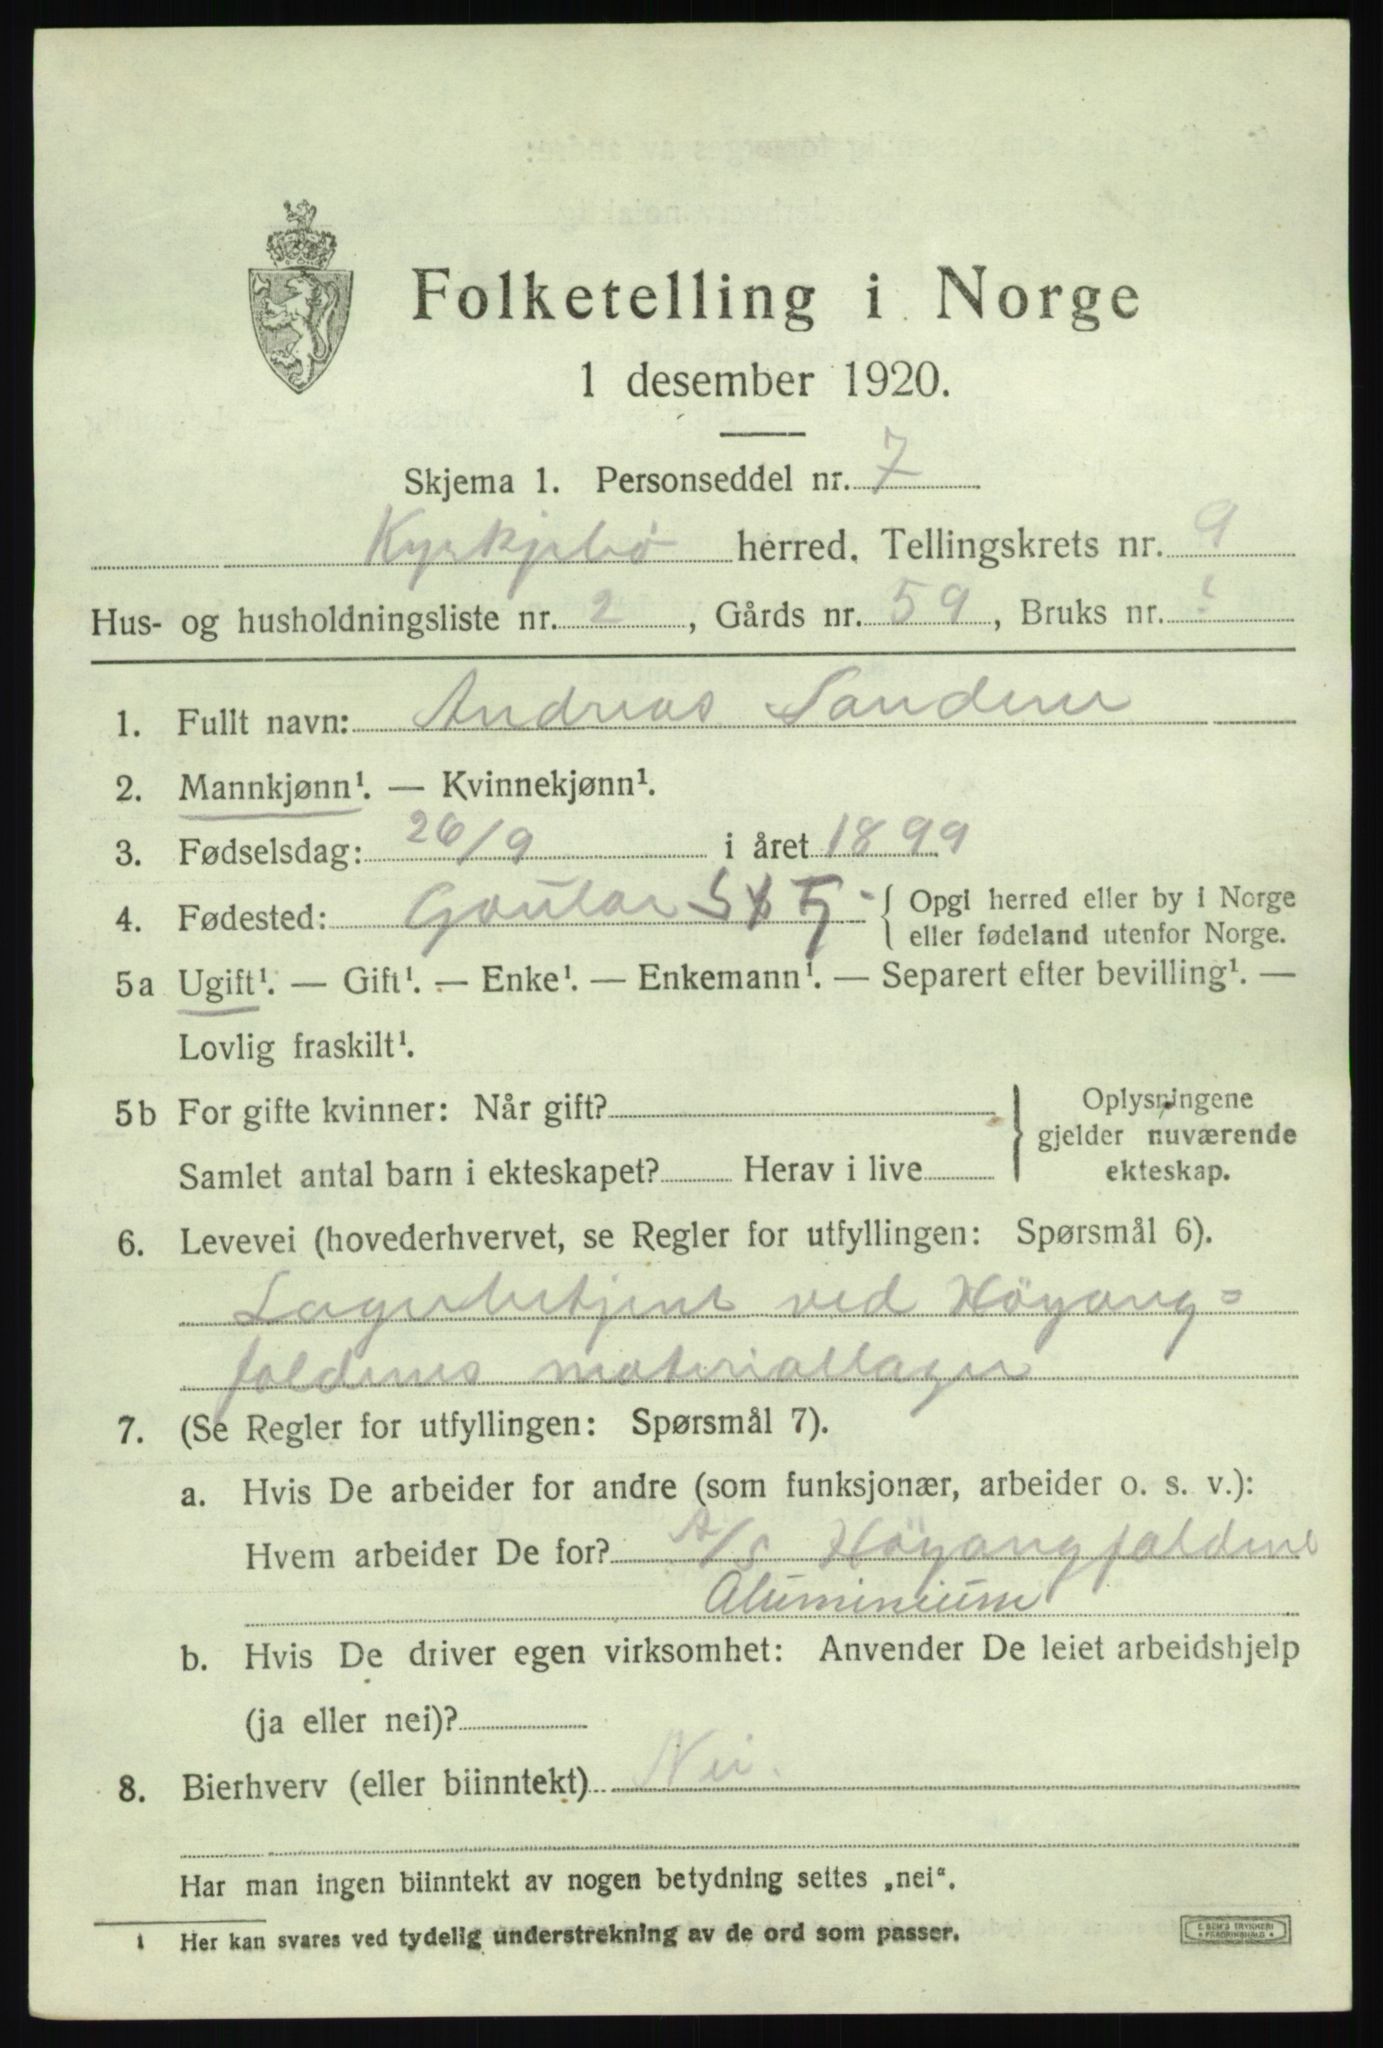 Folketelling i Norge
1 desember 1920.
Skjema 1. Personseddel nr. 7
Kyrkjebö herred. Tellingskrets nr. 9
Hus- og husholdningsliste nr. 2, Gårds nr. 59, Bruks nr. ?
1. Fullt navn: Andreas Sandene
2. Mannkjønn¹. — Kvinnekjønn¹.
3. Fødselsdag: 26/9 i året 1899
4. Fødested: Gaular S & Fj { Opgi herred eller by i Norge
eller fødeland utenfor Norge.
5a Ugift¹. — Gift¹. — Enke¹. — Enkemann¹. — Separert efter bevilling¹. —
Lovlig fraskilt¹.
5b For gifte kvinner: Når gift? } Oplysningene
gjelder nuværende
Samlet antal barn i ekteskapet? Herav i live
ekteskap.
6. Levevei (hovederhvervet, se Regler for utfyllingen: Spørsmål 6).
Lagerbetjent ved Höyang=
faldenes materiallager
7. (Se Regler for utfyllingen: Spørsmål 7).
a. Hvis De arbeider for andre (som funksjonær, arbeider o. s. v.):
Hvem arbeider De for? A/S Höyangfaldene
Aluminium
b. Hvis De driver egen virksomhet: Anvender De leiet arbeidshjelp
(ja eller nei)?
8. Bierhverv (eller biinntekt) Nei.
Har man ingen biinntekt av nogen betydning settes „nei“.
1 Her kan svares ved tydelig understrekning av de ord som passer.
E. SEM'S TRYKKERI
* FREDRIKSHALD *